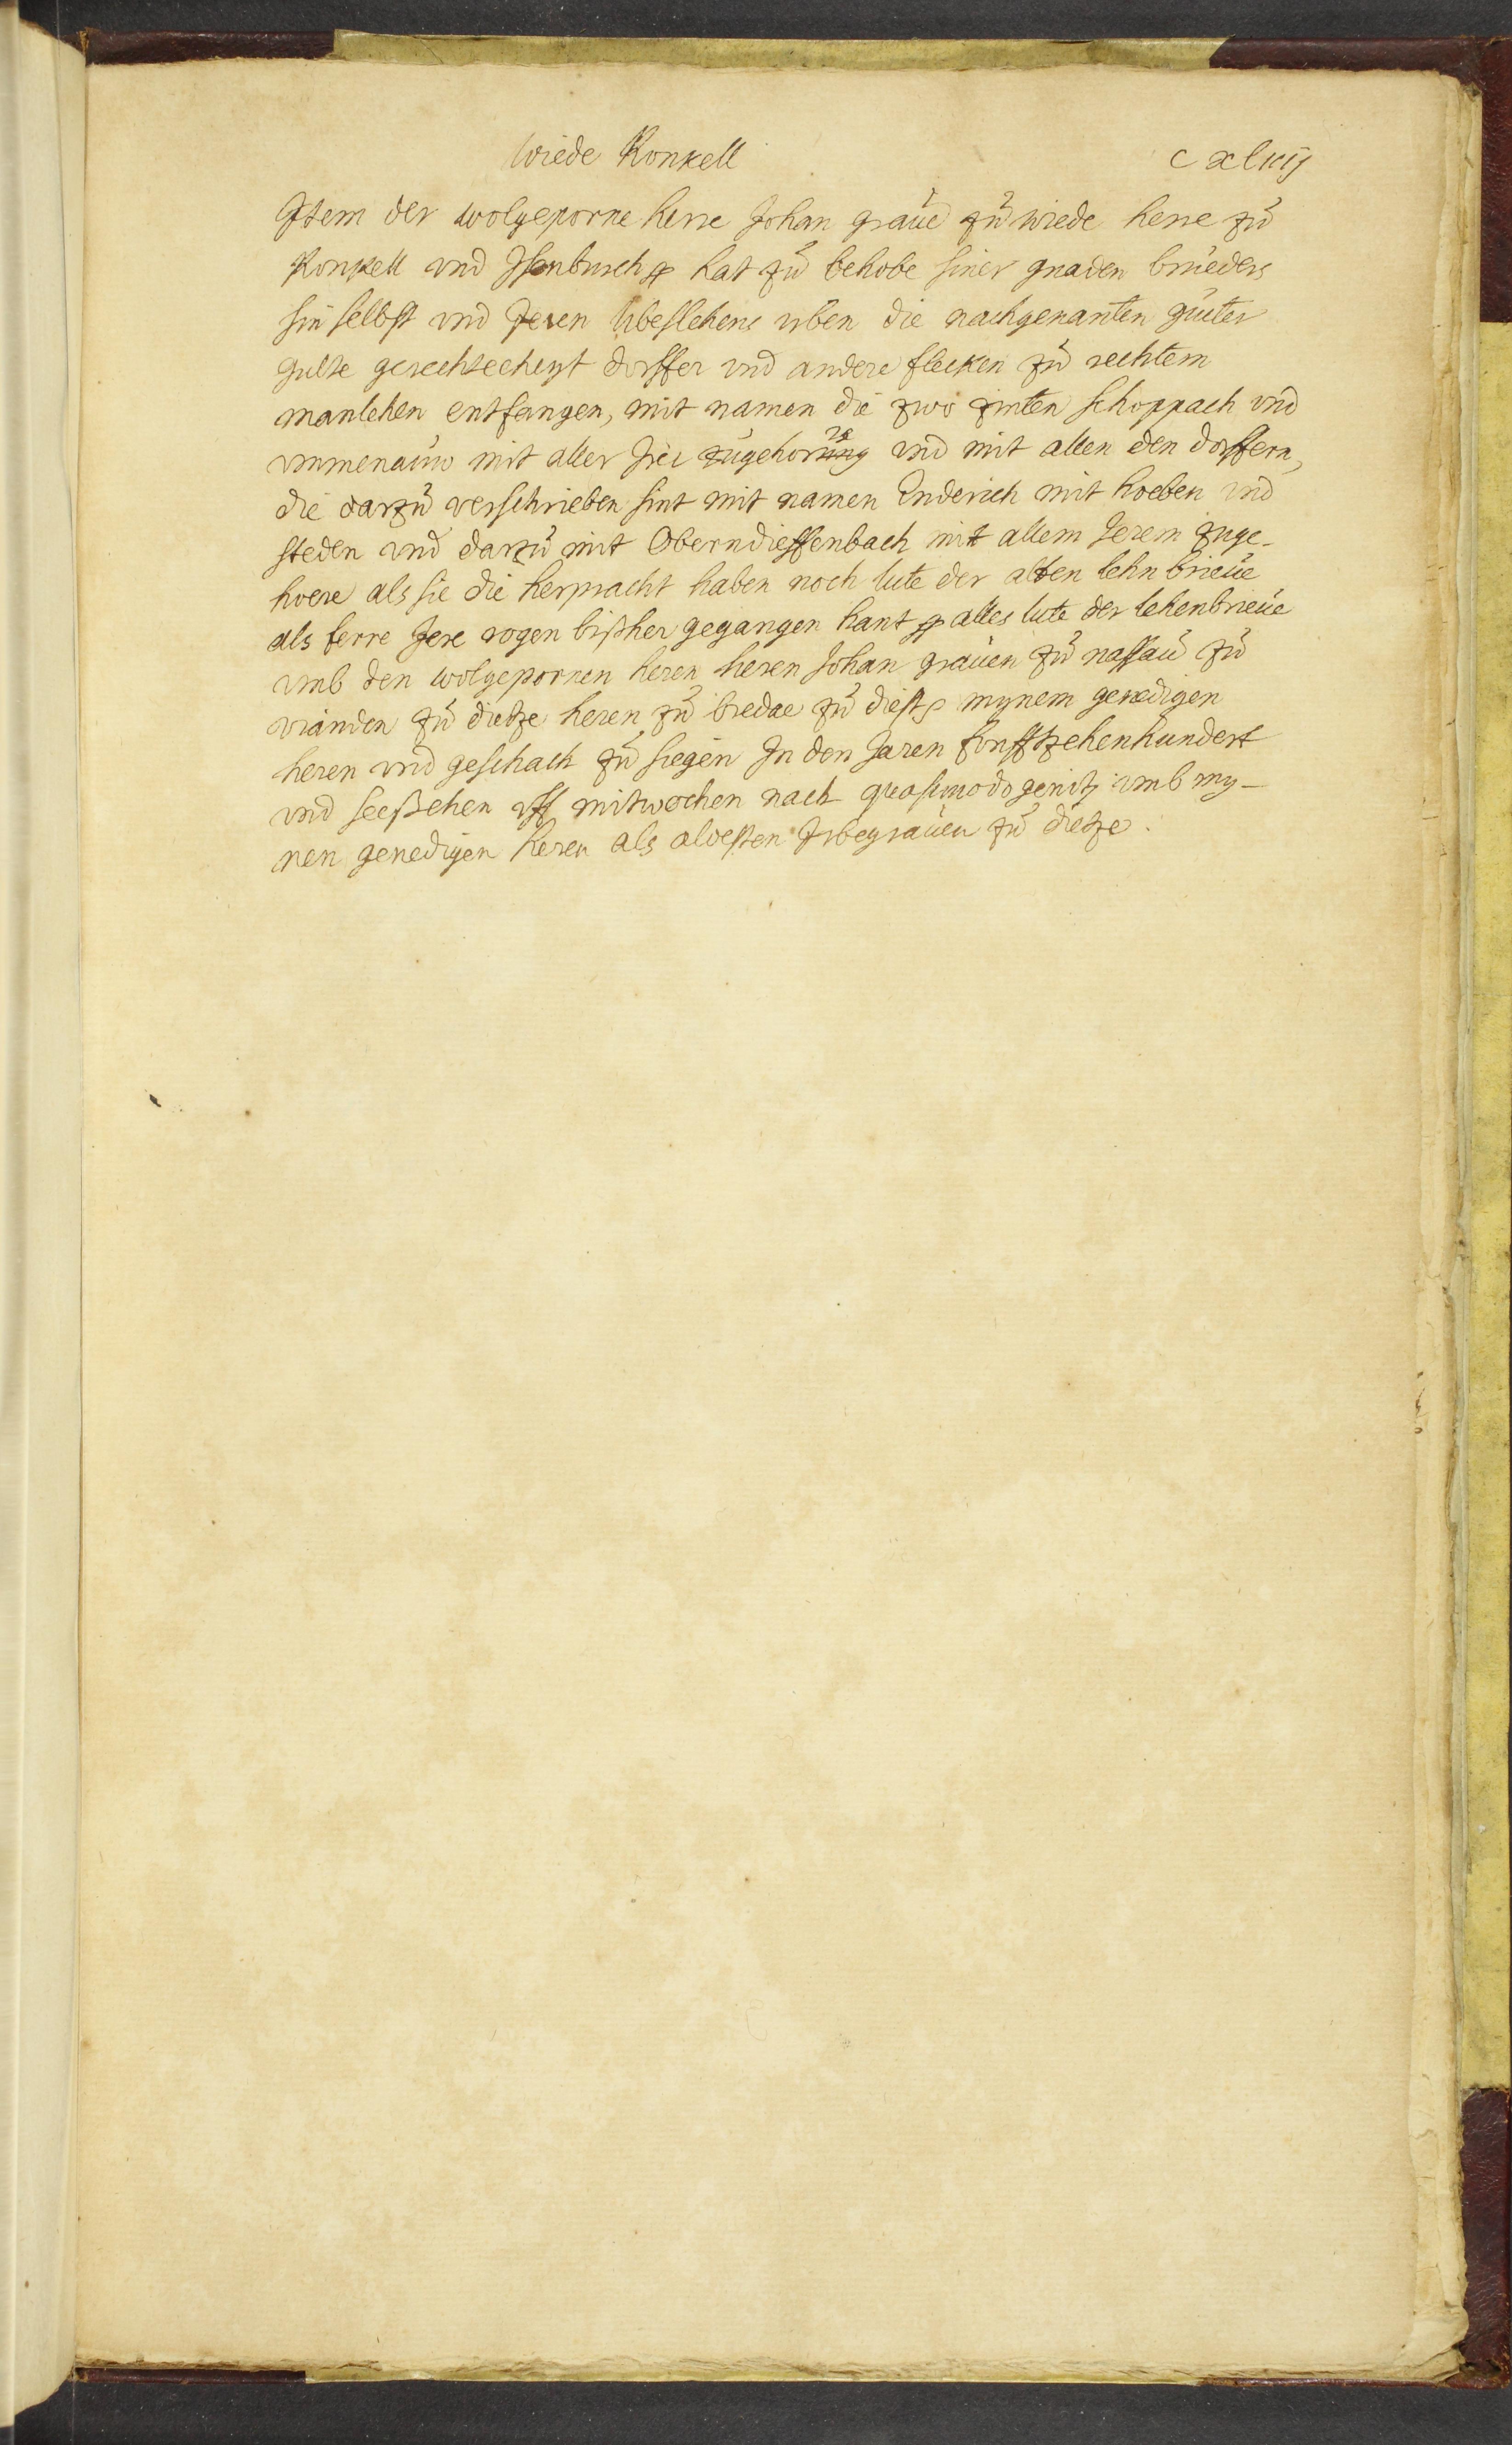 Wiede Ronkell
cxlviij
Item der wolgeporne herre Johan graue zu wiede herre zu
Ronkell vnd Jsenburch ꝛc hat zu behobe siner gnaden brueders
sin selbst vnd Jeren libeslehens erben die nachgenanten gueter
gulte gerechtecheyt dorffer vnd andere flecken zu rechtem
manlehen entfangen, mit namen die zwo zinten schoppach vnd
vmmenauw mit aller Jrer zugehorung re vnd mit allen den dorffern,
die darzu verschrieben sint mit namen Enderich mit hoeben vnd
steden vnd darzu mit Oberndieffenbach mit allem Jerem zuge-
hoere als sie die herpracht haben noch lute der alten lehnbrieue
als ferre Jere rogen bißher gegangen hant ꝛc alles lute der lehenbrieue
vmb den wolgepornen heren heren Johan grauen zu nassau zu
vianden zu dietze heren zu bredae zu diest ꝛc mynem genedigen
heren vnd geschach zu siegen Jn den Jaren funfftzehenhundert
vnd seeßehen vff mitwochen nach quasimodogenitj vmb my-
nen genedigen heren als aldesten Jrbegrauen zu dietze.